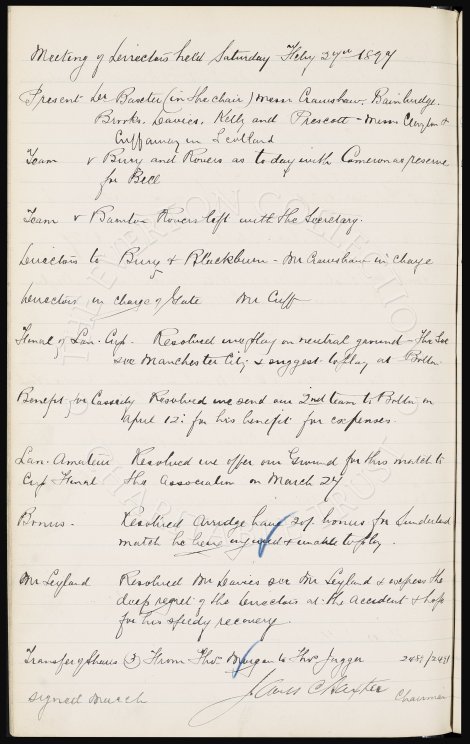 Meeting of Directors held Saturday Feby 27th 1897
Present Dr Baxter (in the chair) Messrs Crawshaw, Bainbridge,
Brooks, Davies, Kelly and Prescott - Messrs Clayton &
Cuff away in Scotland
Team v Bury and Rovers as to day with Cameron as reserve
for Bell
Team v Rovers left with the Secretary.
Directors to Bury & Blackburn - Mr Crawshaw in charge
Directors in charge of Gate Mr Cuff
Final of Lan. Cup. Resolved we play on neutral ground - The Sec
see Manchester City & suggest to play at Bolton
Benefit for Cassidy Resolved we send our 2nd team to Bolton on
April 12: for his benefit for expenses.
Lan. Amateur Resolved we offer our Ground for this match to
Cup Final the Association on March 27
Bonus. Resolved Arridge have 20/ bonus for Sunderland
match he being injured & unable to play.
Mr Leyland Resolved Mr Davies see Mr Leyland & express the
deep regret of the Directors at the accident & hope
for his speedy recovery
Transfer of Shares (3) From Thos Morgan to Thos Jagger
signed March James C Baxter Chairman
THE EVERTON COLLECTION
CHARITABLE TRUST